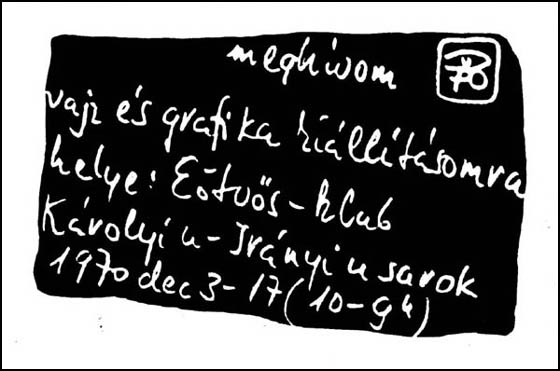 meghivom
rajz és grafika kiállításomra
helye: Eötvös-klub
Károlyi u - Irányi u sarok
1970 dec 3-17 (10-9h)